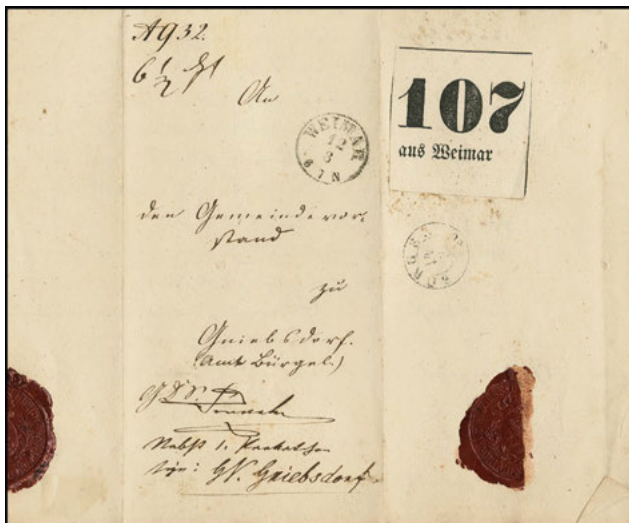 A932.
6 1/2
An
WEIMAR
12
8
6 1 N
107
aus Weimar
den Gemeindevor-
stand
zu
Gniebsdorf.
(Amt Bürgel.)
Nebst 1.
GV. Gniebsdorf